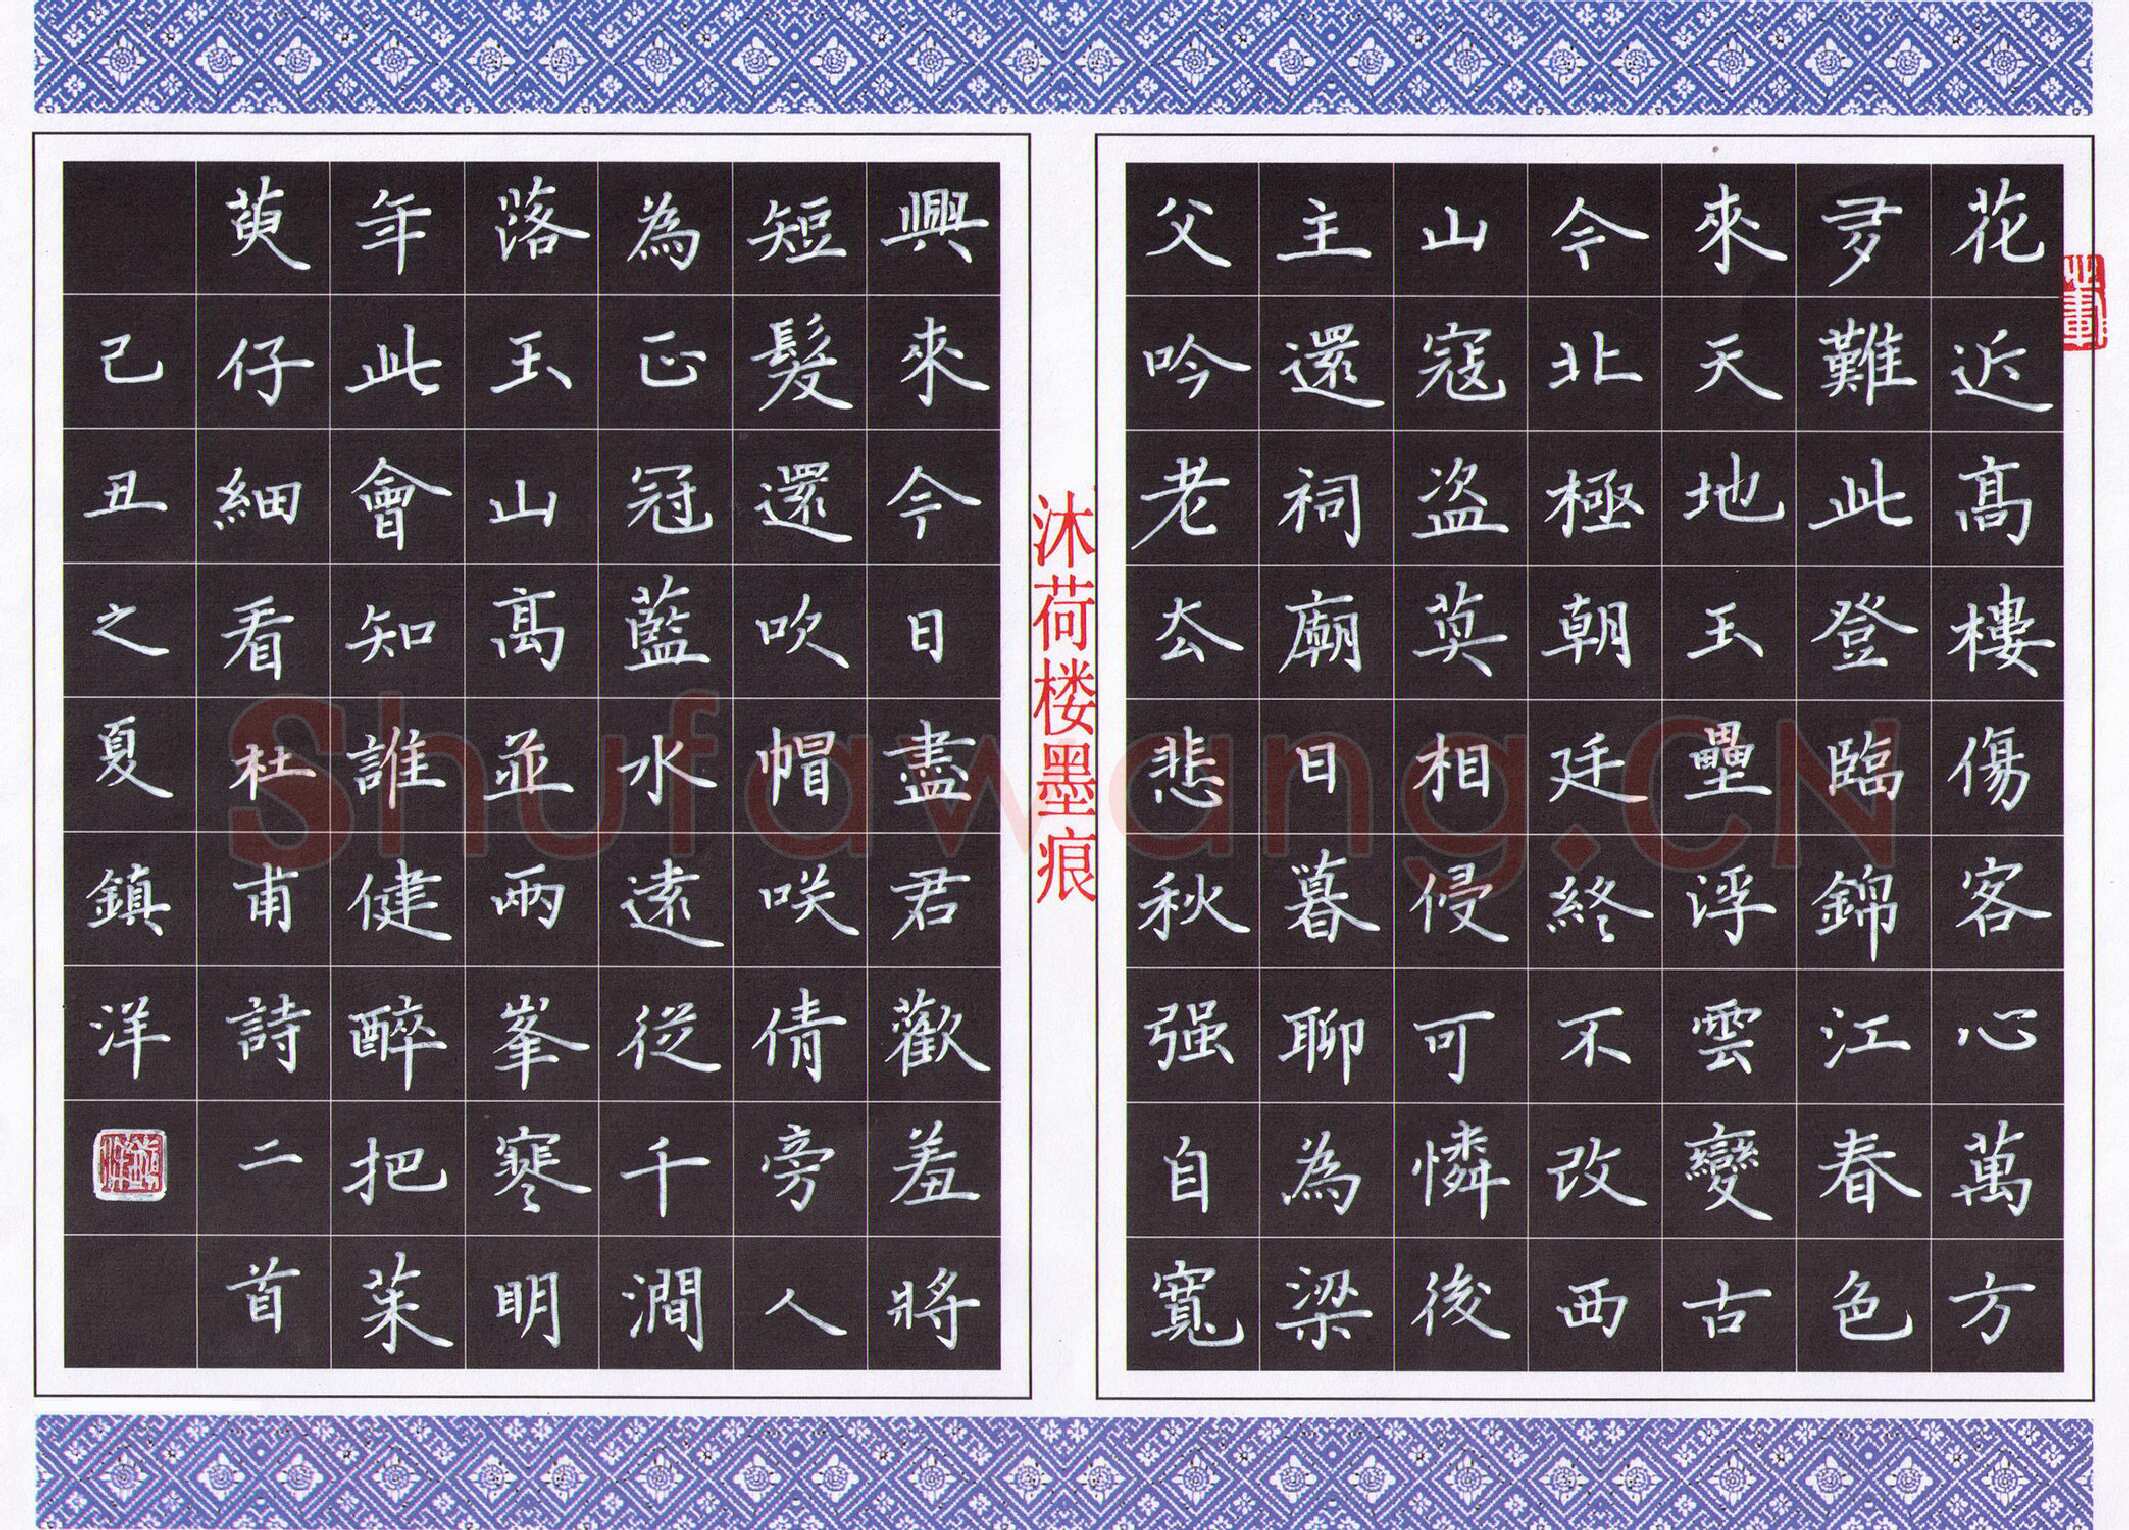 花近高樓傷客心萬方
夛難此登臨錦江春色
來天地玉壘浮雲變古
今北極朝廷終不改西
山寇盜莫相侵可憐後
主還祠廟日暮聊為梁
父吟老去悲秋强自寬
沐荷楼墨痕
興來今日盡君歡羞將
短髮還吹帽咲倩旁人
為正冠藍水遠從千澗
落玉山高並兩峯寒明
年此會知誰健醉把茱
萸仔細看杜甫詩二首
己丑之夏鎮洋
Shufawang.CN